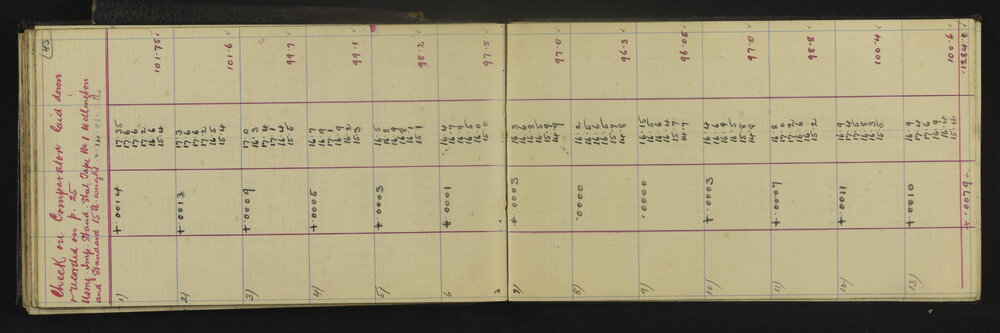 43
Check on Comparator laid down
recorded on p. 25
Using Imp. Stand. Steel Tape No 1 Wellington
and Standard 15 lb. weight = 14.98 lb.
1) +.0014 17.35 101.75 ✓
17.6
17.6
17.2
16.6
15.4
2) +.0013 17.3 101.6 ✓
17.6
17.6
17.2
16.5
15.4
3) +.0009 17.0 99.7 ✓
16.3
17.4
17.1
16.4
15.5
4) +.0005 16.7 99.1 ✓
16.9
17.1
16.9
16.2
15.3
5) +.0003 16.5 98.2 ✓
16.8
16.9
16.8
16.1
15.1
6 +.0001 16.4 97.5 ✓
16.7
16.9
16.5
16.0
15.0
7) +.0003 16.3 97.0 ✓
16.6
16.8
16.5
15.9
14.9
8) .0000 16.2 96.3 ✓
16.5
16.6
16.5
15.7
14.8
9) .0000 16.15 96.05 ✓
16.5
16.6
16.4
15.7
14.7
10) +.0003 16.4 97.0 ✓
16.6
16.9
16.5
15.8
14.8
11) +.0007 16.8 98.8 ✓
17.0
17.2
16.6
16.
15.2
12) +.0011 16.9 100.4 ✓
17.4
17.5
16.8
16.3
15.5
13) +.0010 16.9 100.6 ✓
17.4
17.6
16.9
16.4
15.4
+.0079 ✓ 1284.0 ✓